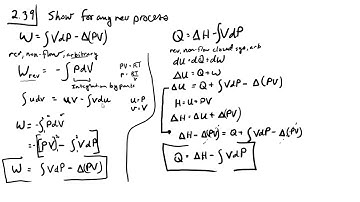 2.39 Show for any rev process
W = ∫VdP - Δ(PV)
rev, non-flow, arbitrary
W_rev = -∫PdV
PV = RT
P = RT/V
integration by parts
∫udv = uv - ∫vdu
u=P
v=V
W = -∫PdV
= -[PV] - ∫VdP
W = ∫VdP - Δ(PV)
Q = ΔH - ∫VdP
rev, non-flow closed sys, arb
dU = dQ + dW
ΔU = Q + W
ΔU = Q + ∫VdP - Δ(PV)
H = U + PV
ΔH = ΔU + Δ(PV)
ΔH - Δ(PV) = Q + ∫VdP - Δ(PV)
Q = ΔH - ∫VdP